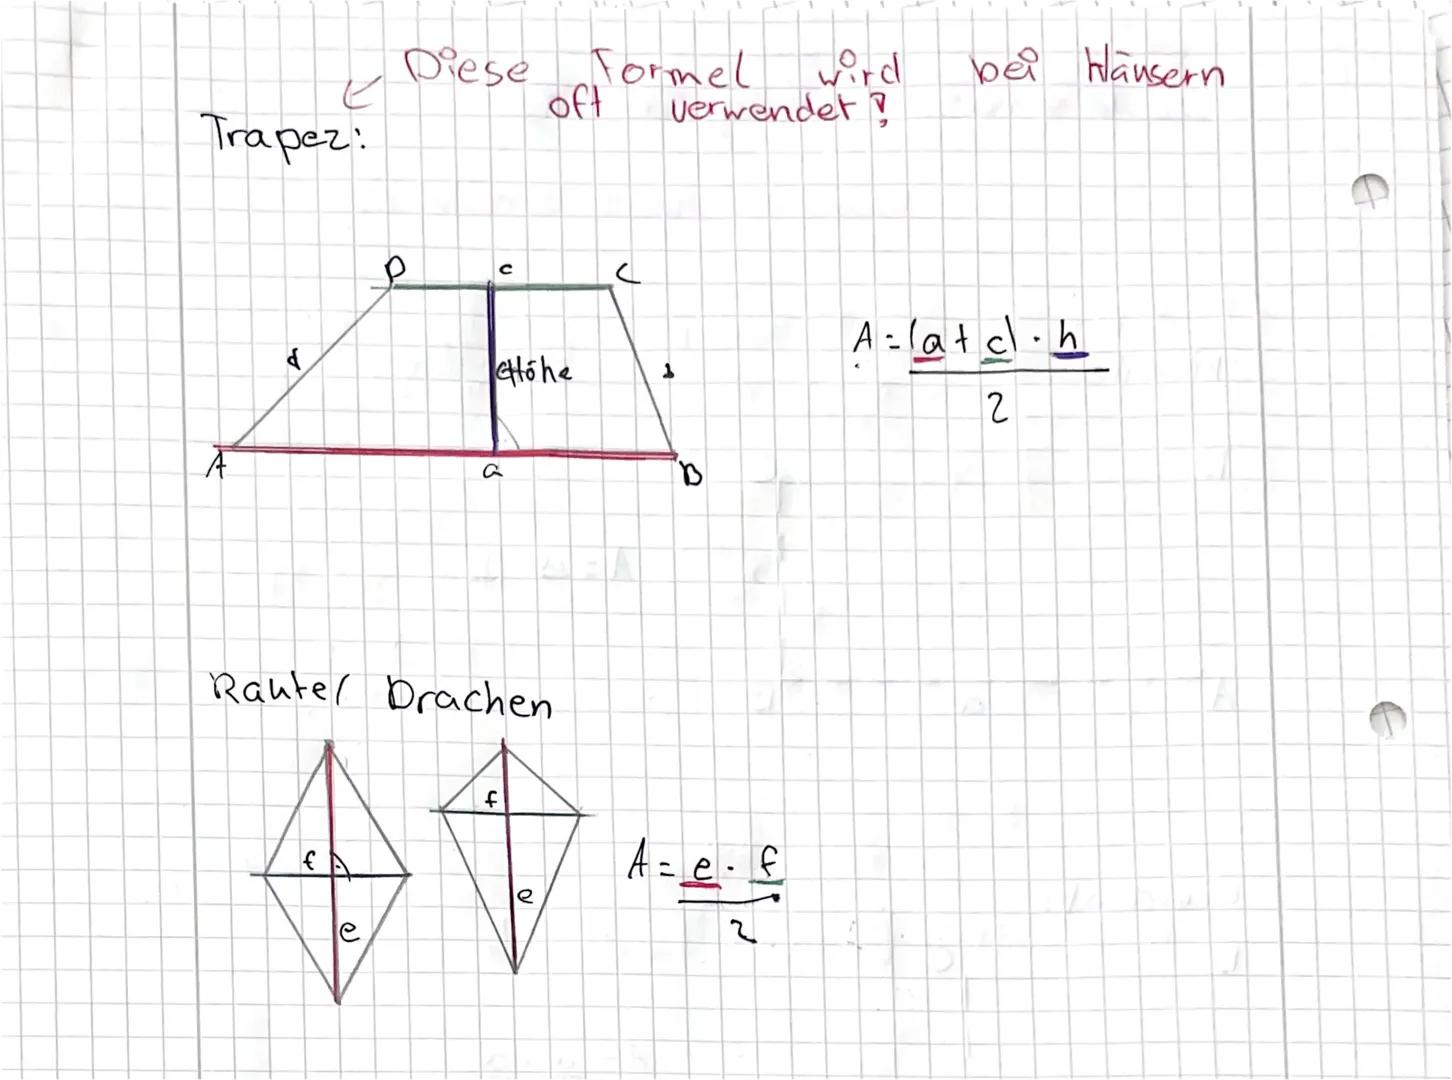 Diese Formel wird bei Häusern
oft verwendet!
Trapez:
D c C
d Höhe b
A a B
A = (a + c) · h
2
Raute/ Drachen
f e
f e
A = e · f
2